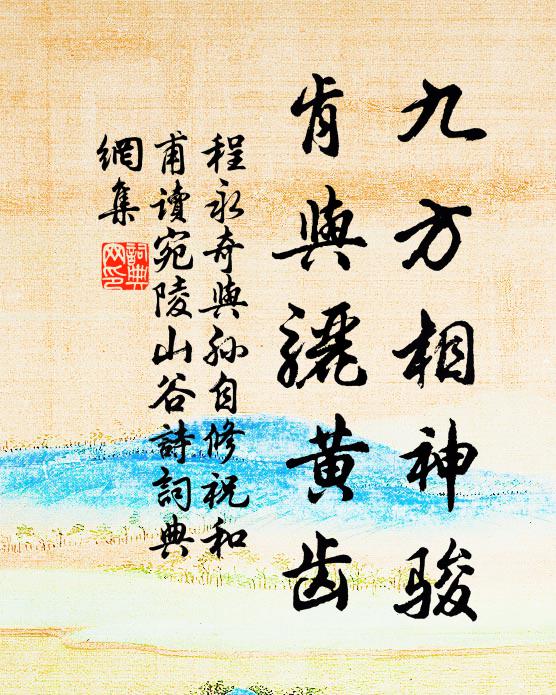 九方相神骏
肯與驪黄齒
程永奇與孙自修祝和
甫讀宛陵山谷詩詞典
網集
詞典
网印